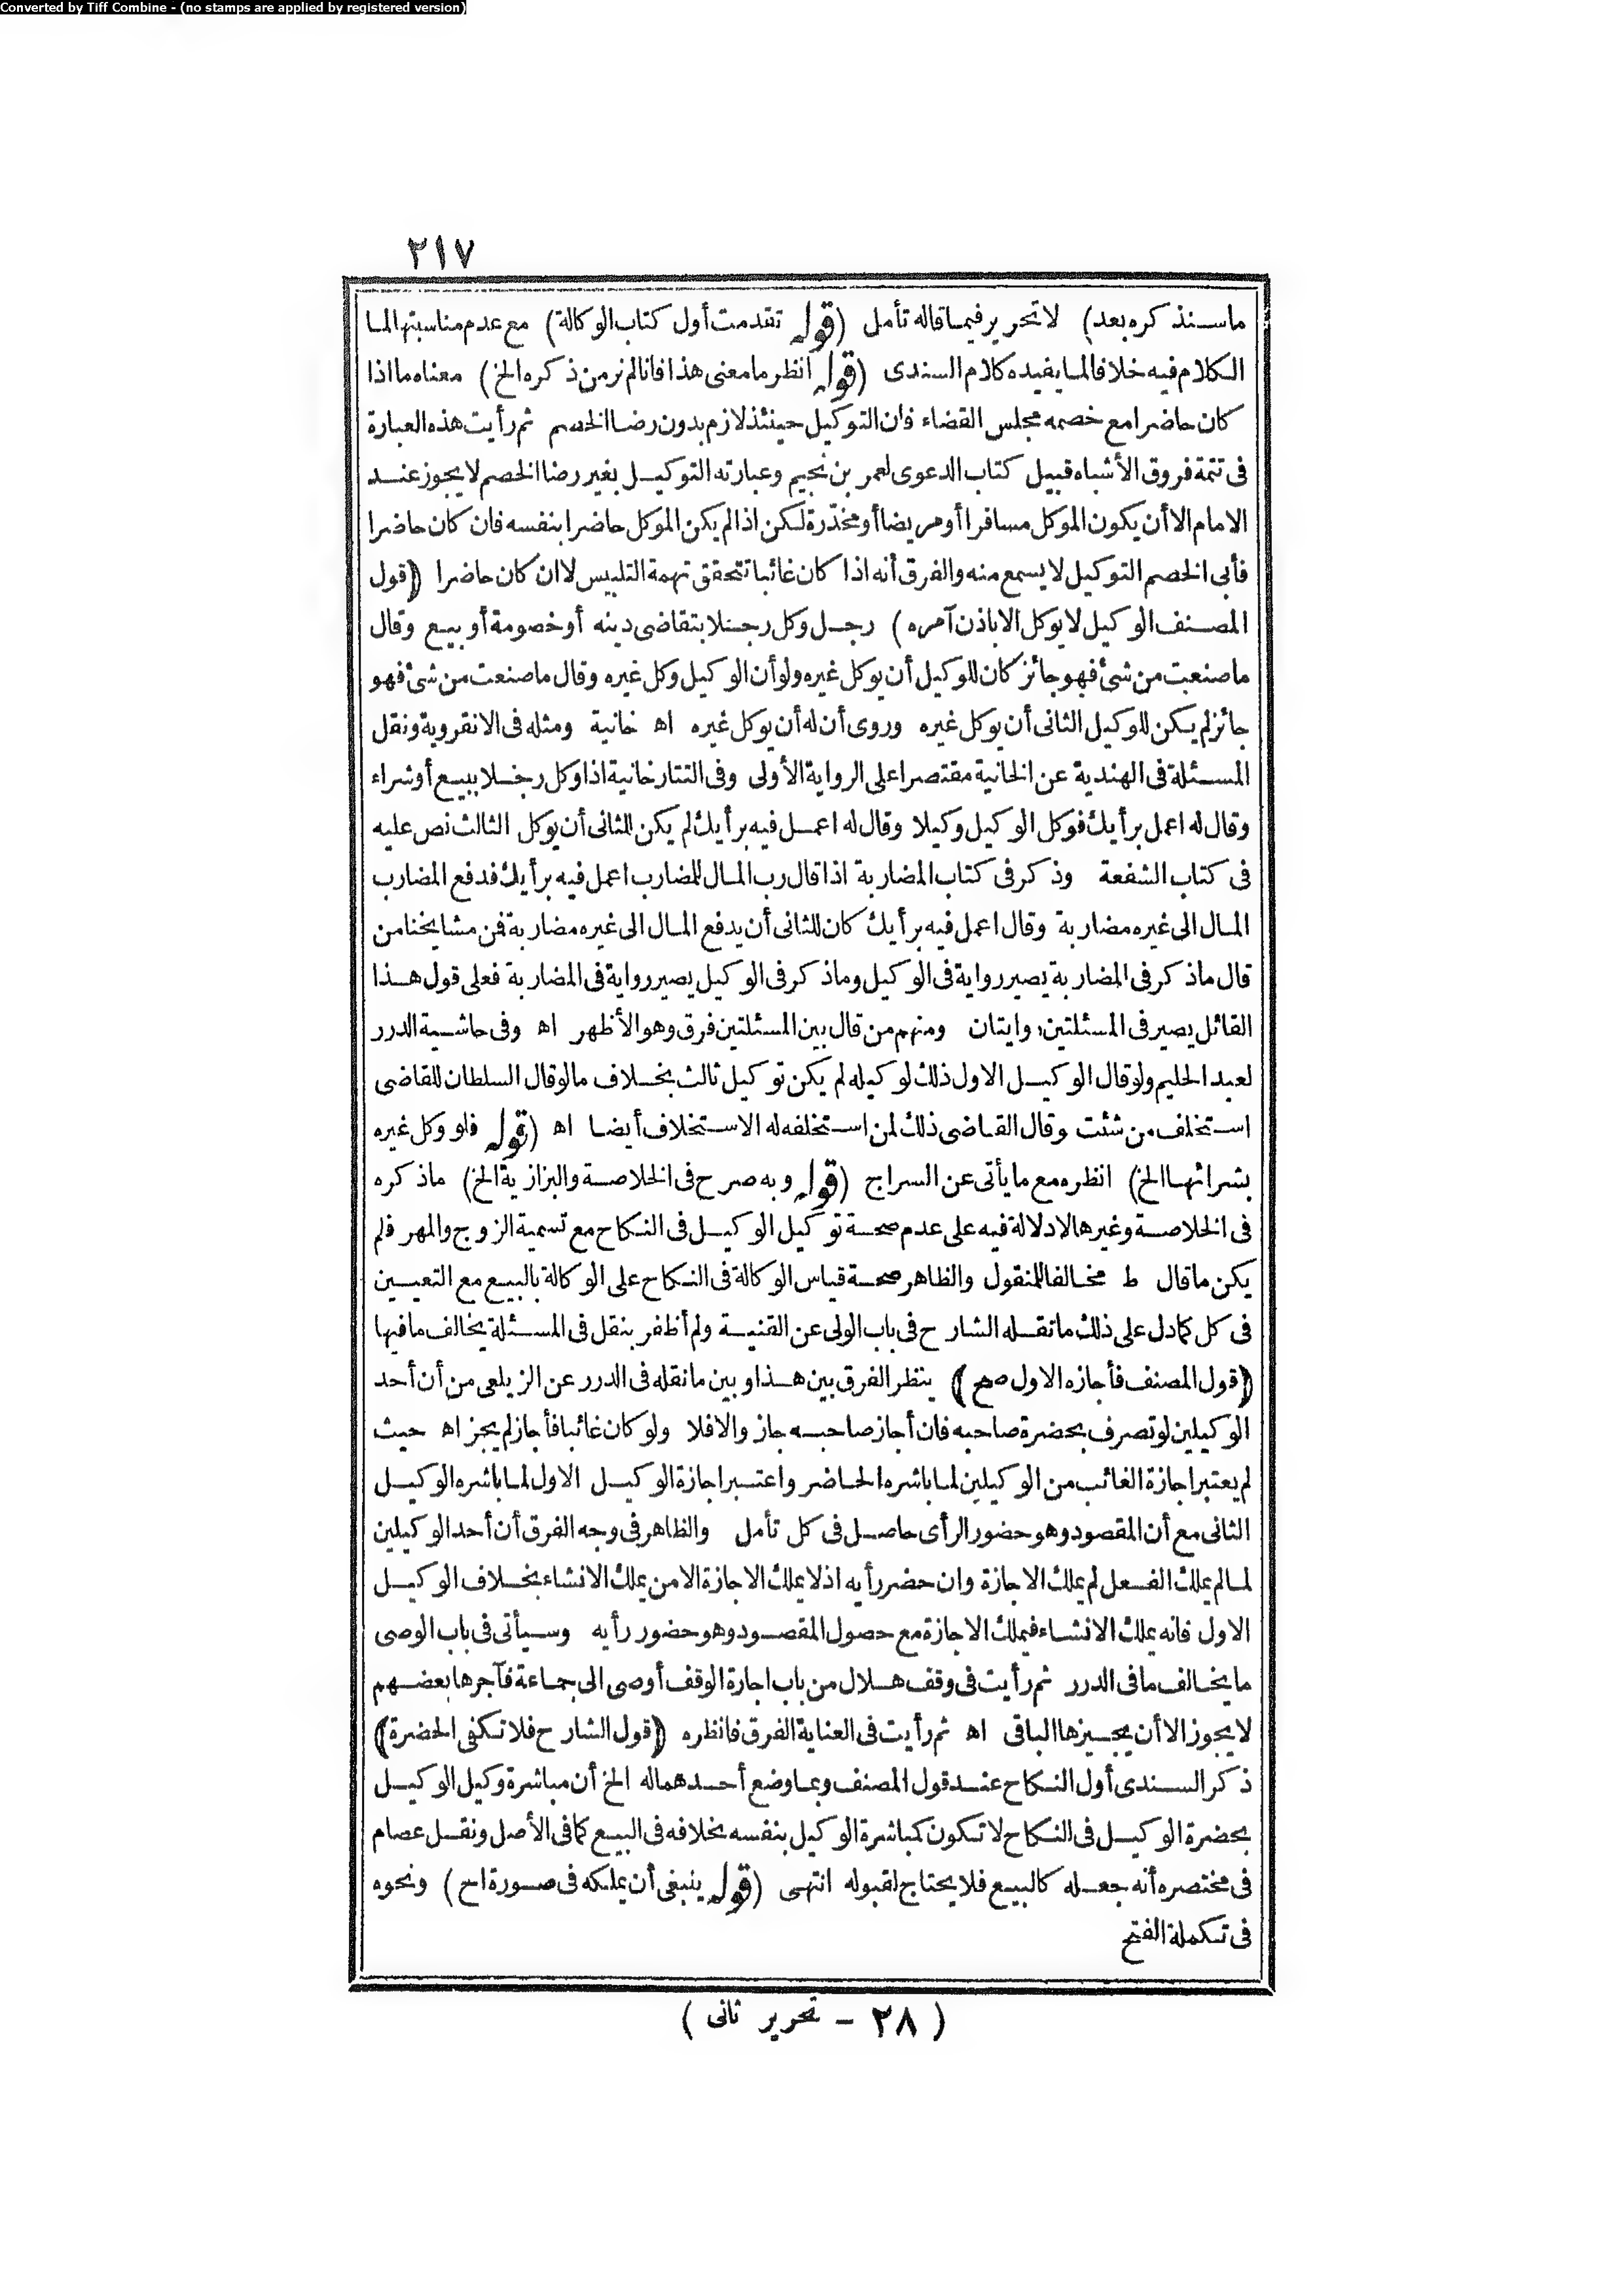 Converted by Tiff Combine - (no stamps are applied by registered version)
٢١٧
ماسنذكره بعد) لا تحرير فيما قاله تأمل (قوله تقدمت أول كتاب الوكالة) مع عدم مناسبتها لما
الكلام فيه خلافا لما يفيده كلام السندى (قوله انظر ما معنى هذا فانا لم نر من ذكره الخ) معناه ما اذا
كان حاضرا مع خصمه مجلس القضاء فان التوكيل حينئذ لازم بدون رضا الخصم ثم رأيت هذه العبارة
فى تتمة فروق الأشباه قبيل كتاب الدعوى لعمر بن نجيم وعبارته التوكيل بغير رضا الخصم لا يجوز عند
الامام الا أن يكون الموكل مسافرا أو مريضا أو مخدّرة لكن اذا لم يكن الموكل حاضرا بنفسه فان كان حاضرا
فأبى الخصم التوكيل لا يسمع منه والفرق أنه اذا كان غائبا تتحقق تهمة التلبيس لا ان كان حاضرا (قول
المصنف الوكيل لا يوكل الا باذن آمره) رجل وكل رجلا بتقاضى دينه أو خصومة أو بيع وقال
ما صنعت من شئ فهو جائز كان للوكيل أن يوكل غيره ولو أن الوكيل وكل غيره وقال ما صنعت من شئ فهو
جائز لم يكن للوكيل الثانى أن يوكل غيره وروى أن له أن يوكل غيره اه خانية ومثله فى الانقروية ونقل
المسئلة فى الهندية عن الخانية مقتصرا على الرواية الأولى وفى التتارخانية اذا وكل رجلا ببيع أو شراء
وقال له اعمل برأيك فوكل الوكيل وكيلا وقال له اعمل فيه برأيك لم يكن للثانى أن يوكل الثالث نص عليه
فى كتاب الشفعة وذكر فى كتاب المضاربة اذا قال رب المال للمضارب اعمل فيه برأيك فدفع المضارب
المال الى غيره مضاربة وقال اعمل فيه برأيك كان للثانى أن يدفع المال الى غيره مضاربة فمن مشايخنا من
قال ما ذكر فى المضاربة يصير رواية فى الوكيل وما ذكر فى الوكيل يصير رواية فى المضاربة فعلى قول هذا
القائل يصير فى المسئلتين روايتان ومنهم من قال بين المسئلتين فرق وهو الأظهر اه وفى حاشية الدرر
لعبد الحليم ولو قال الوكيل الاول ذلك لوكيله لم يكن توكيل ثالث بخلاف ما لو قال السلطان للقاضى
استخلف من شئت وقال القاضى ذلك لمن استخلفه له الاستخلاف أيضا اه (قوله فلو وكل غيره
بشرائها الخ) انظره مع ما يأتى عن السراج (قوله وبه صرح فى الخلاصة والبزازية الخ) ما ذكره
فى الخلاصة وغيرها لا دلالة فيه على عدم صحة توكيل الوكيل فى النكاح مع تسمية الزوج والمهر فلم
يكن ما قال ط مخالفا للمنقول والظاهر صحة قياس الوكالة فى النكاح على الوكالة بالبيع مع التعيين
فى كل كما دل على ذلك ما نقله الشارح فى باب الولى عن القنية ولم أظفر بنقل فى المسئلة يخالف ما فيها
(قول المصنف فأجازه الاول صح) ينظر الفرق بين هذا وبين ما نقله فى الدرر عن الزيلعى من أن أحد
الوكيلين لو تصرف بحضرة صاحبه فان أجاز صاحبه جاز والا فلا ولو كان غائبا فأجاز لم يجز اه حيث
لم يعتبر اجازة الغائب من الوكيلين لما باشره الحاضر واعتبر اجازة الوكيل الاول لما باشره الوكيل
الثانى مع أن المقصود وهو حضور الرأى حاصل فى كل تأمل والظاهر فى وجه الفرق أن أحد الوكيلين
لما لم يملك الفعل لم يملك الاجازة وان حضر رأيه اذ لا يملك الاجازة الا من يملك الانشاء بخلاف الوكيل
الاول فانه يملك الانشاء فيملك الاجازة مع حصول المقصود وهو حضور رأيه وسيأتى فى باب الوصى
ما يخالف ما فى الدرر ثم رأيت فى وقف هلال من باب اجارة الوقف أوصى الى جماعة فآجرها بعضهم
لا يجوز الا أن يجيزها الباقى اه ثم رأيت فى العناية الفرق فانظره (قول الشارح فلا تكفى الحضرة)
ذكر السندى أول النكاح عند قول المصنف وبما وضع أحدهما له الخ أن مباشرة وكيل الوكيل
بحضرة الوكيل فى النكاح لا تكون كمباشرة الوكيل بنفسه بخلافه فى البيع كما فى الأصل ونقل عصام
فى مختصره أنه جعله كالبيع فلا يحتاج لقبوله انتهى (قوله ينبغى أن يملكه فى صورة اح) ونحوه
فى تكملة الفتح
( ٢٨ - تحرير ثانى )